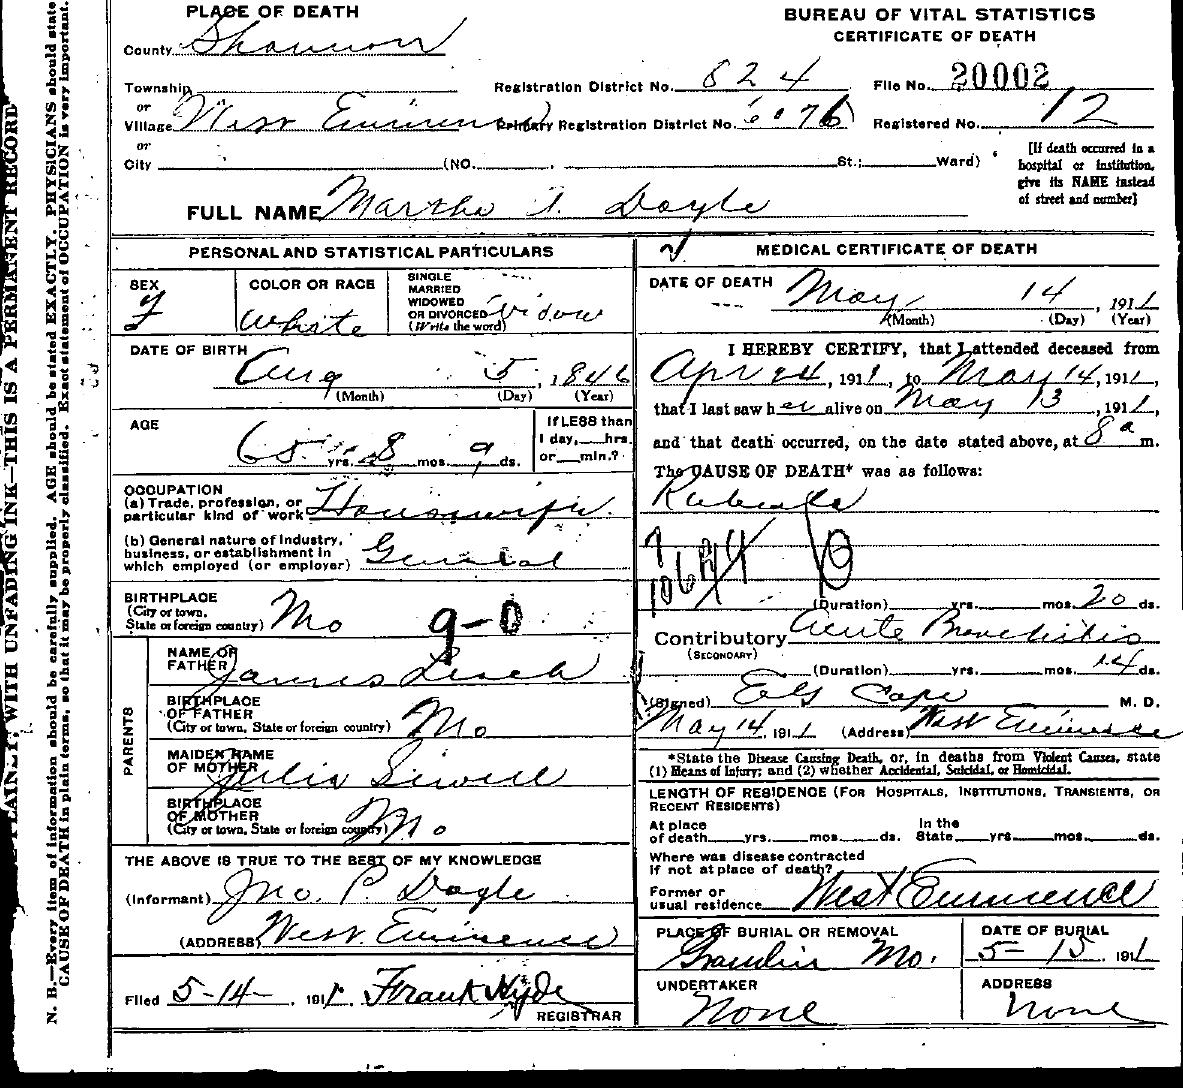 PLACE OF DEATH
BUREAU OF VITAL STATISTICS
CERTIFICATE OF DEATH
County Shannon
Township
Registration District No. 824
File No. 20002
or
Village West Eminence
Primary Registration District No. 6076
Registered No. 12
or
City (NO. , St.; Ward)
[If death occurred in a
hospital or institution,
give its NAME instead
of street and number]
FULL NAME Martha A. Doyle
PERSONAL AND STATISTICAL PARTICULARS
SEX
f
COLOR OR RACE
White
SINGLE
MARRIED
WIDOWED
OR DIVORCED
(Write the word)
Widow
DATE OF BIRTH
Aug 5, 1846
(Month) (Day) (Year)
AGE
65 yrs. 8 mos. 9 ds.
If LESS than
1 day,___hrs.
or___min.?
OCCUPATION
(a) Trade, profession, or
particular kind of work Housewife
(b) General nature of industry,
business, or establishment in
which employed (or employer) General
BIRTHPLACE
(City or town,
State or foreign country) Mo
9-0
PARENTS
NAME OF
FATHER James
BIRTHPLACE
OF FATHER
(City or town, State or foreign country) Mo
MAIDEN NAME
OF MOTHER Julia Sewell
BIRTHPLACE
OF MOTHER
(City or town, State or foreign country) Mo
THE ABOVE IS TRUE TO THE BEST OF MY KNOWLEDGE
(Informant) Jno. P. Doyle
(ADDRESS) West Eminence
Filed 5-14-, 1911 Frank Hyde
REGISTRAR
MEDICAL CERTIFICATE OF DEATH
DATE OF DEATH
May 14, 1911
(Month) (Day) (Year)
I HEREBY CERTIFY, that I attended deceased from
Apr 24, 1911, to May 14, 1911,
that I last saw her alive on May 13, 1911,
and that death occurred, on the date stated above, at 8 a m.
The CAUSE OF DEATH* was as follows:
Rubeola
(Duration) yrs. mos. 20 ds.
Contributory Acute Bronchitis
(SECONDARY)
(Duration) yrs. mos. 14 ds.
(Signed) Cape M. D.
May 14, 1911 (Address) West Eminence
*State the Disease Causing Death, or, in deaths from Violent Causes, state
(1) Means of Injury; and (2) whether Accidental, Suicidal, or Homicidal.
LENGTH OF RESIDENCE (FOR HOSPITALS, INSTITUTIONS, TRANSIENTS, OR
RECENT RESIDENTS)
At place
of death yrs. mos. ds.
In the
State yrs. mos. ds.
Where was disease contracted
if not at place of death?
Former or
usual residence West Eminence
PLACE OF BURIAL OR REMOVAL
Grandin Mo.
DATE OF BURIAL
5-15, 1911
UNDERTAKER
None
ADDRESS
None
PLAINLY, WITH UNFADING INK—THIS IS A PERMANENT RECORD
N. B.—Every item of information should be carefully supplied. AGE should be stated EXACTLY. PHYSICIANS should state
CAUSE OF DEATH in plain terms, so that it may be properly classified. Exact statement of OCCUPATION is very important.